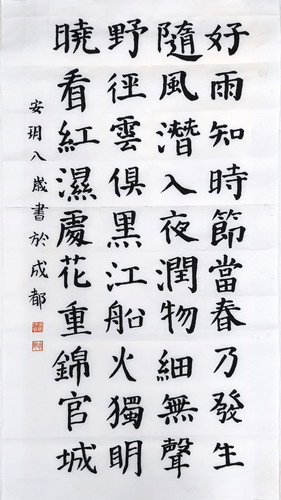 好雨知時節當春乃發生
隨風潛入夜潤物細無聲
野徑雲俱黑江船火獨明
曉看紅濕處花重錦官城
安玥八歲書於成都